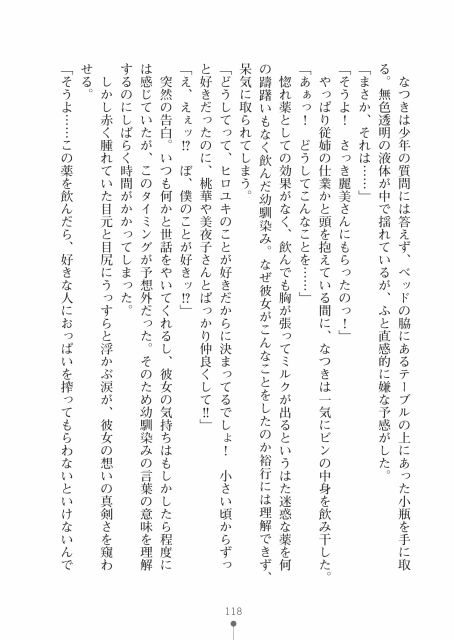 なつきは少年の質問には答えず、ベッドの脇にあるテーブルの上にあった小瓶を手に取
る。無色透明の液体が中で揺れているが、ふと直感的に嫌な予感がした。
「まさか、それは……」
「そうよ！　さっき麗美さんにもらったのっ！」
やっぱり従姉の仕業かと頭を抱えている間に、なつきは一気にビンの中身を飲み干した。
「あぁっ！　どうしてこんなことを……」
惚れ薬としての効果がなく、飲んでも胸が張ってミルクが出るというはた迷惑な薬を何
の躊躇いもなく飲んだ幼馴染み。なぜ彼女がこんなことをしたのか裕行には理解できず、
呆気に取られてしまう。
「どうしてって、ヒロユキのことが好きだからに決まってるでしょ！　小さい頃からずっ
と好きだったのに、桃華や美夜子さんとばっかり仲良くして‼」
「え、えぇッ⁉　ぼ、僕のことが好きッ⁉」
突然の告白。いつも何かと世話をやいてくれるし、彼女の気持ちはもしかしたら程度に
は感じていたが、このタイミングが予想外だった。そのため幼馴染みの言葉の意味を理解
するのにしばらく時間がかかってしまった。
しかし赤く腫れていた目元と目尻にうっすらと浮かぶ涙が、彼女の想いの真剣さを窺わ
せる。
「そうよ……この薬を飲んだら、好きな人におっぱいを搾ってもらわないといけないんで
118